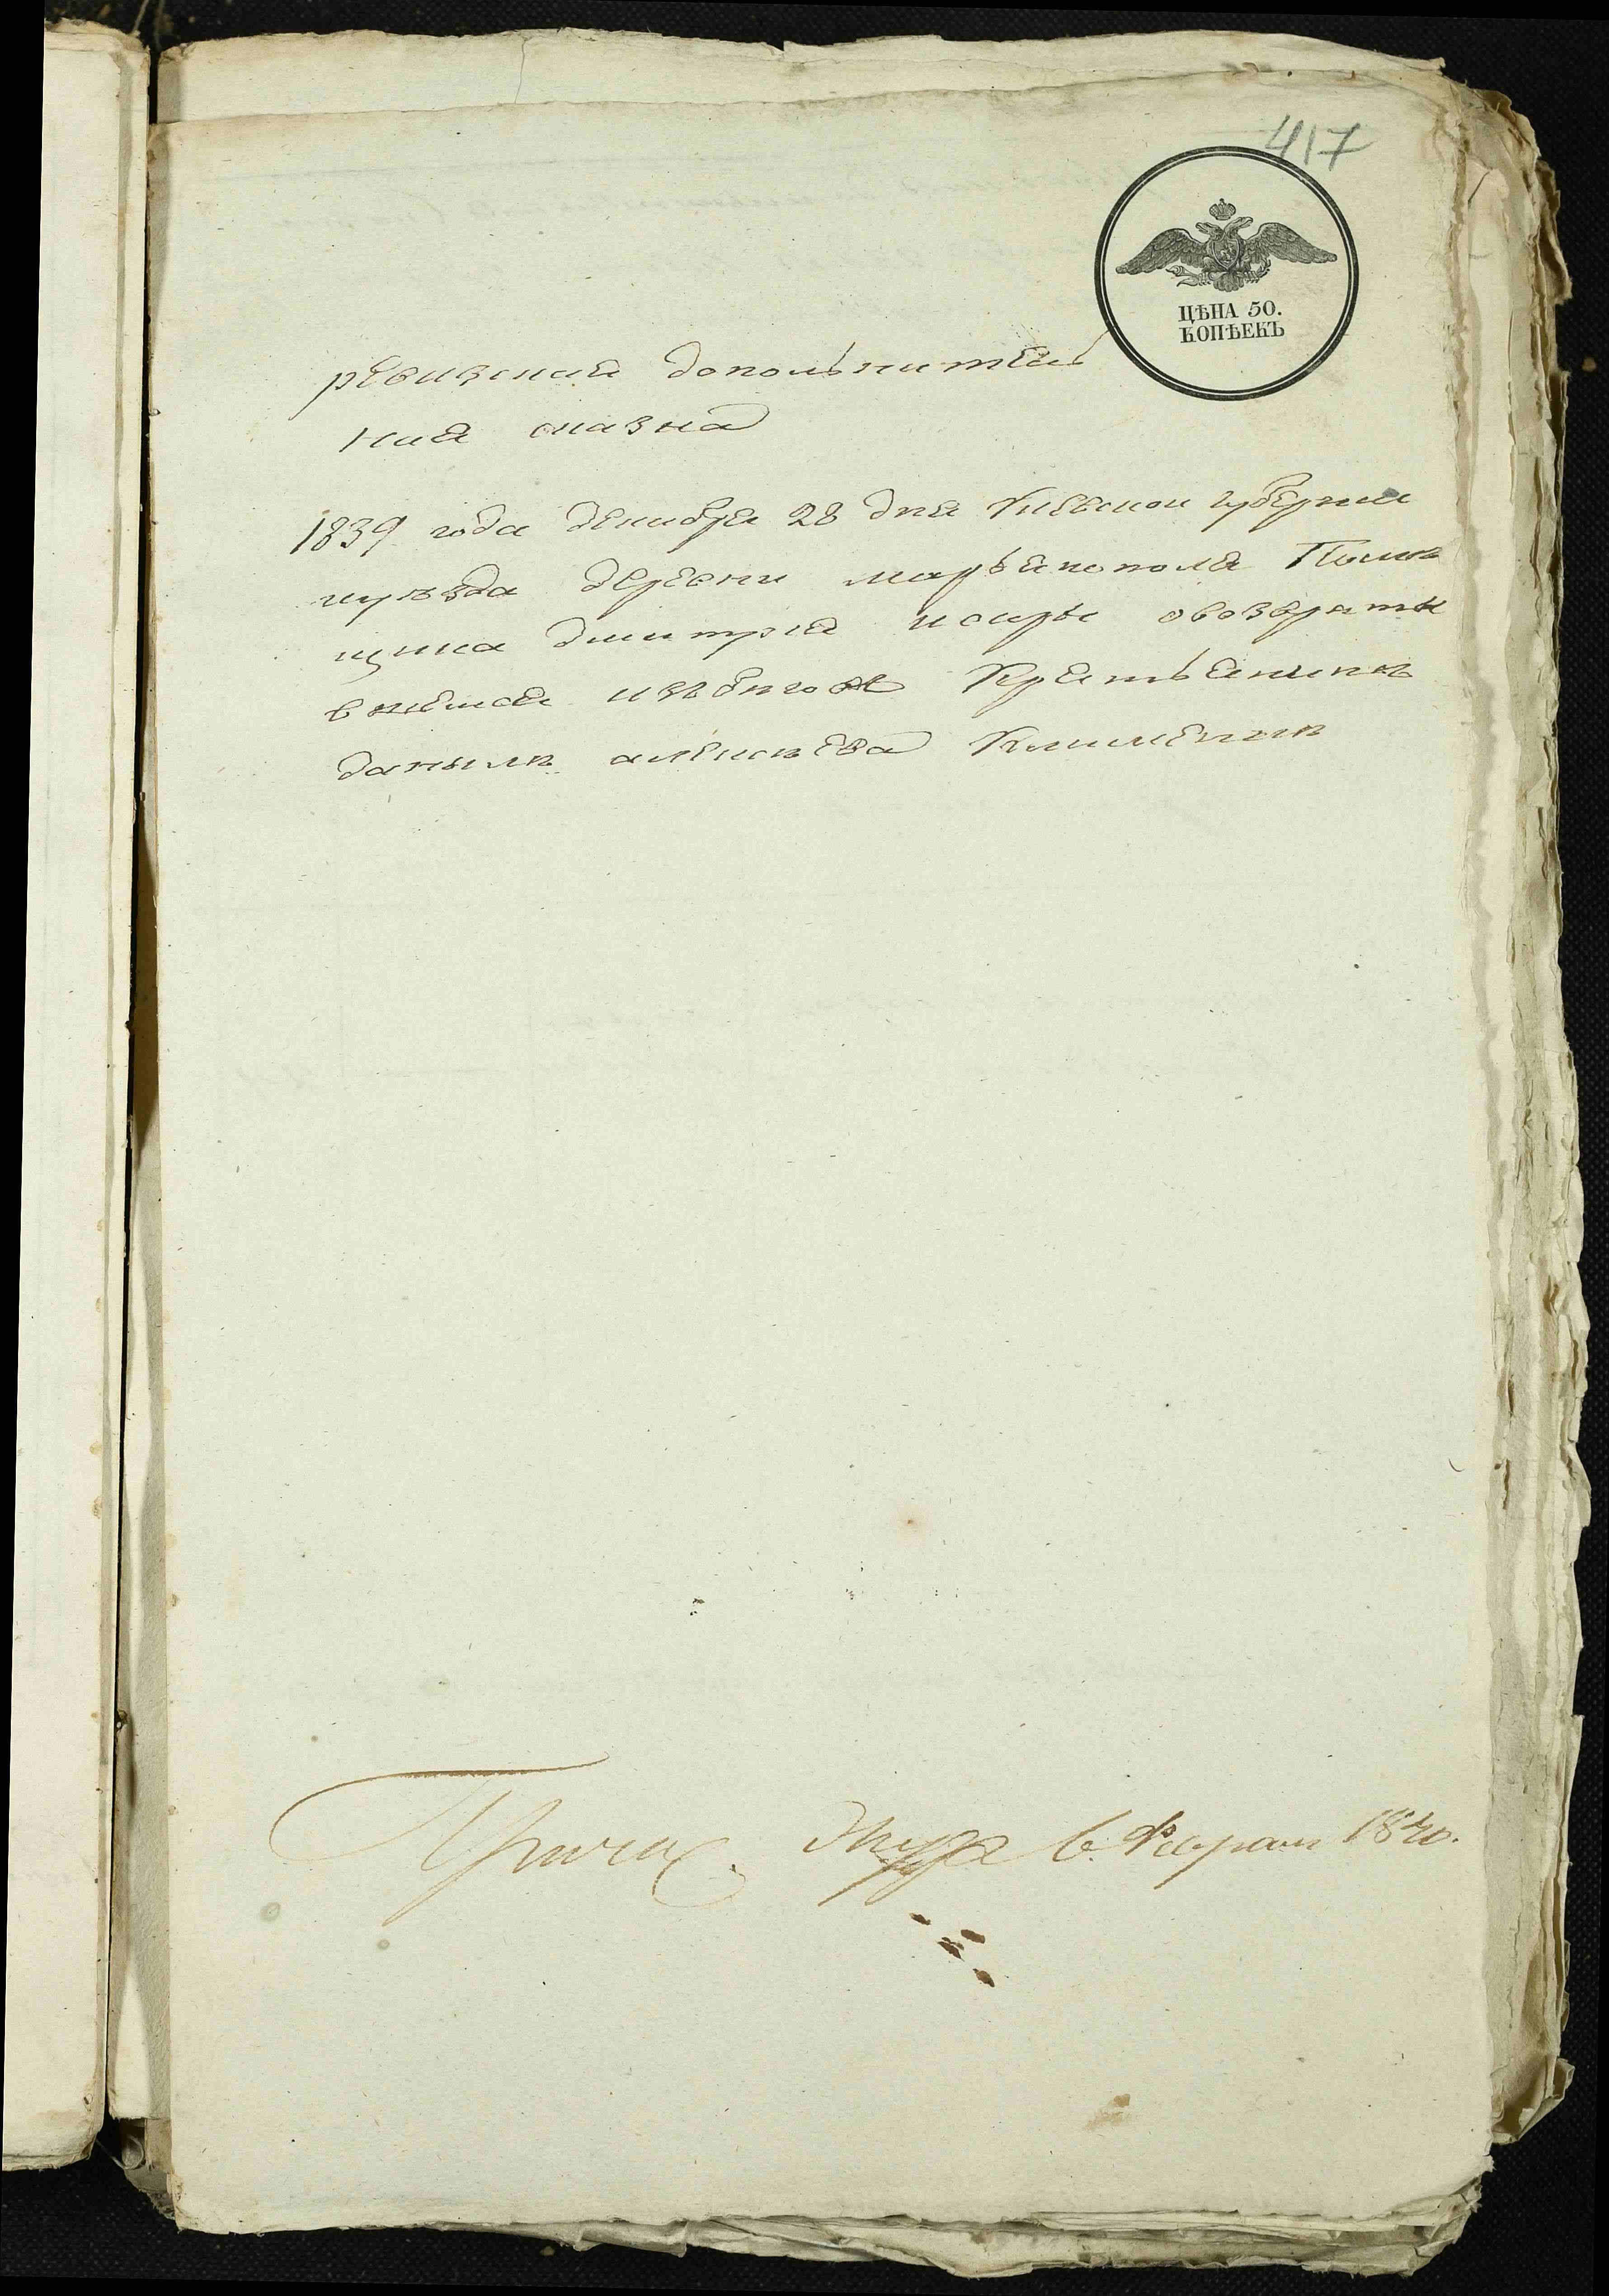 417
ЦѢНА 50.
КОПѢЕКЪ
ревизская дополнитель
ная сказка
1839 года декабря 28 дня Киевской губернии
уѣзда деревни марьянополя Помѣ
щика дмитрия искры овозврати
вшемся избѣгов Крестьянинѣ
данылѣ алексѣева Клименкѣ
6 Февраля 1840.